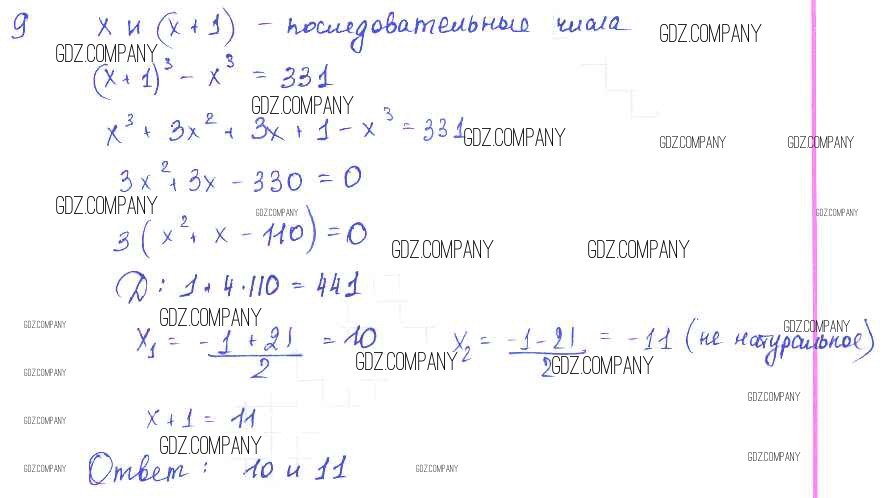 9 x и (x + 1) - последовательные числа
GDZ.COMPANY
GDZ.COMPANY
(x + 1)³ - x³ = 331
GDZ.COMPANY
x³ + 3x² + 3x + 1 - x³ = 331
GDZ.COMPANY
GDZ.COMPANY
GDZ.COMPANY
3x² + 3x - 330 = 0
GDZ.COMPANY
GDZ.COMPANY
GDZ.COMPANY
3(x² + x - 110) = 0
GDZ.COMPANY
GDZ.COMPANY
D: 1 + 4·110 = 441
GDZ.COMPANY
GDZ.COMPANY
GDZ.COMPANY
x₁ = (-1 + 21)/2 = 10 x₂ = (-1 - 21)/2 = -11 (не натуральное)
GDZ.COMPANY
GDZ.COMPANY
GDZ.COMPANY
GDZ.COMPANY
x + 1 = 11
GDZ.COMPANY
GDZ.COMPANY
GDZ.COMPANY
Ответ: 10 и 11
GDZ.COMPANY
GDZ.COMPANY